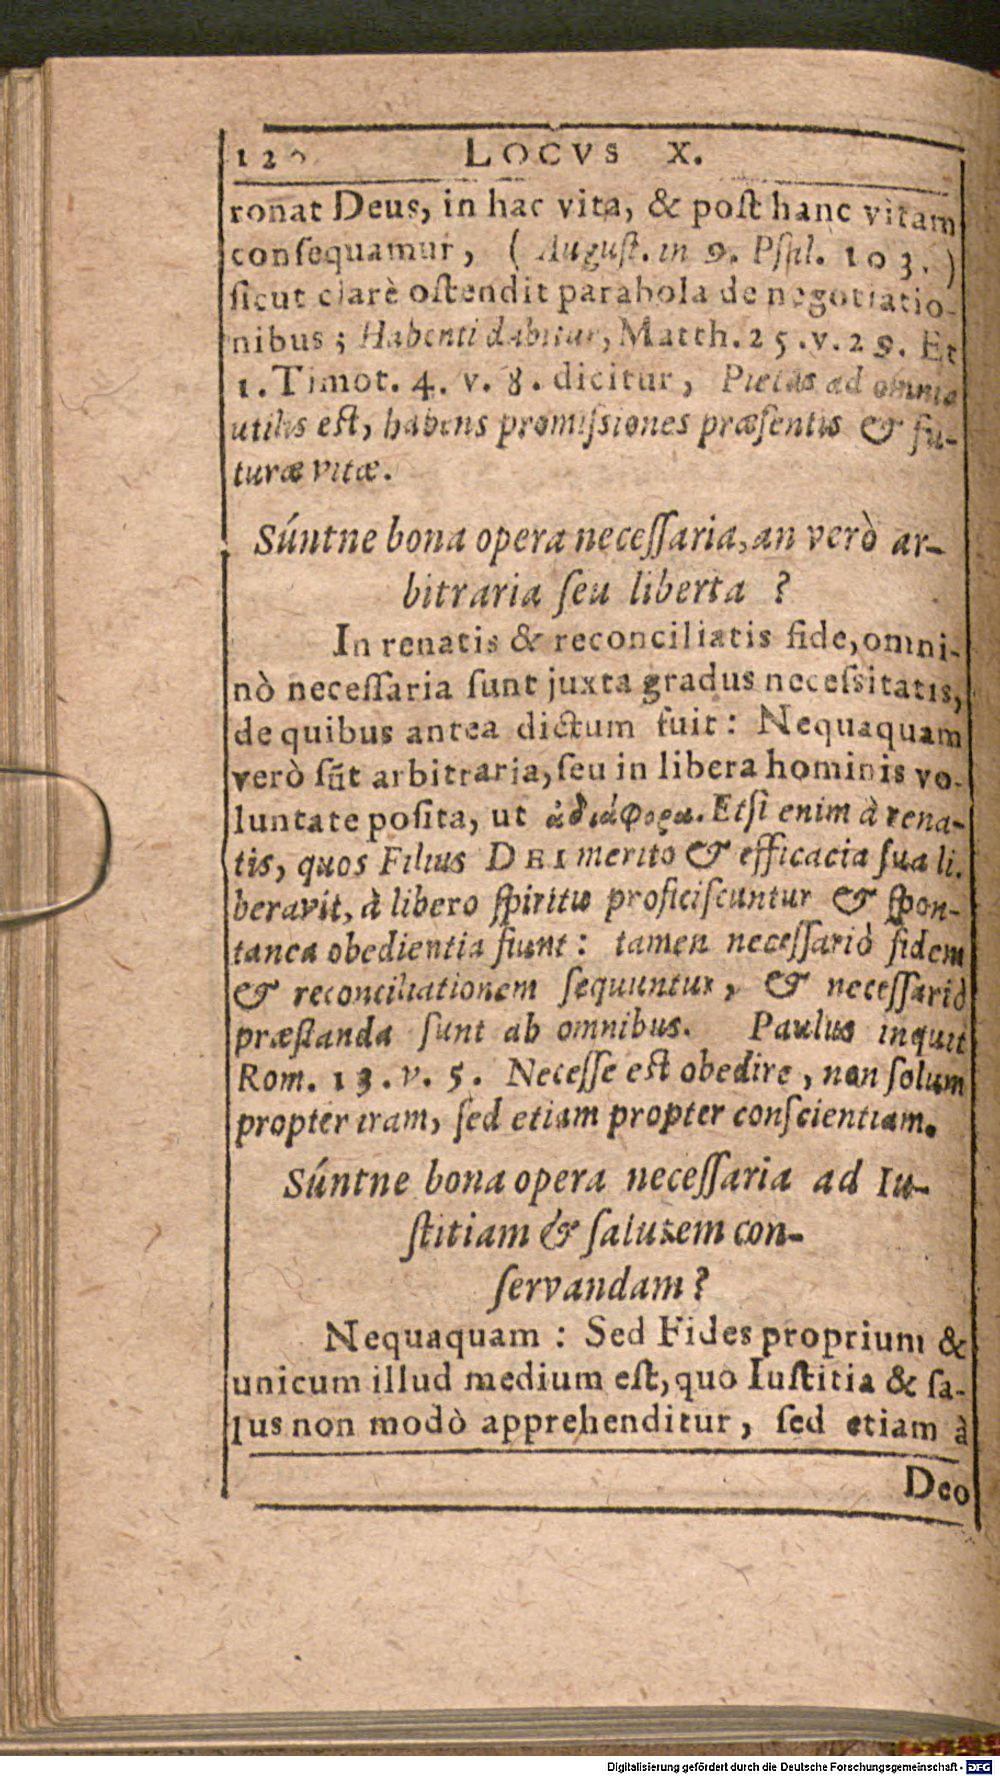 120 LOCVS X.
ronat Deus, in hac vita, & poſt hanc vitam
conſequamur, (Auguſt. in 9. Pſal. 103.)
ſicut clarè oſtendit parabola de negotiatio-
nibus; Habenti dabitur, Matth. 25. v. 29. Et
1. Timot. 4. v. 8. dicitur, Pietas ad omnia
utilis eſt, habens promiſsiones præſentis & fu-
turæ vitæ.
Súntne bona opera neceſſaria, an verò ar-
bitraria ſeu liberta ?
In renatis & reconciliatis fide, omni-
nò neceſſaria ſunt juxta gradus neceſsitatis,
de quibus antea dictum fuit: Nequaquam
verò sũt arbitraria, ſeu in libera hominis vo-
luntate poſita, ut ἀδιάφορα. Etſi enim à rena-
tis, quos Filius DEI merito & efficacia ſua li-
beravit, à libero ſpiritu proficiſcuntur & ſpon-
tanea obedientia fiunt: tamen neceſſariò fidem
& reconciliationem ſequuntur, & neceſſariò
præſtanda ſunt ab omnibus. Paulus inquit
Rom. 13. v. 5. Neceſſe eſt obedire, non ſolum
propter iram, ſed etiam propter conſcientiam.
Súntne bona opera neceſſaria ad Iu-
ſtitiam & ſalutem con-
ſervandam?
Nequaquam: Sed Fides proprium &
unicum illud medium eſt, quo Iuſtitia & ſa-
lus non modò apprehenditur, ſed etiam à
Deo
Digitalisierung gefördert durch die Deutsche Forschungsgemeinschaft - DFG